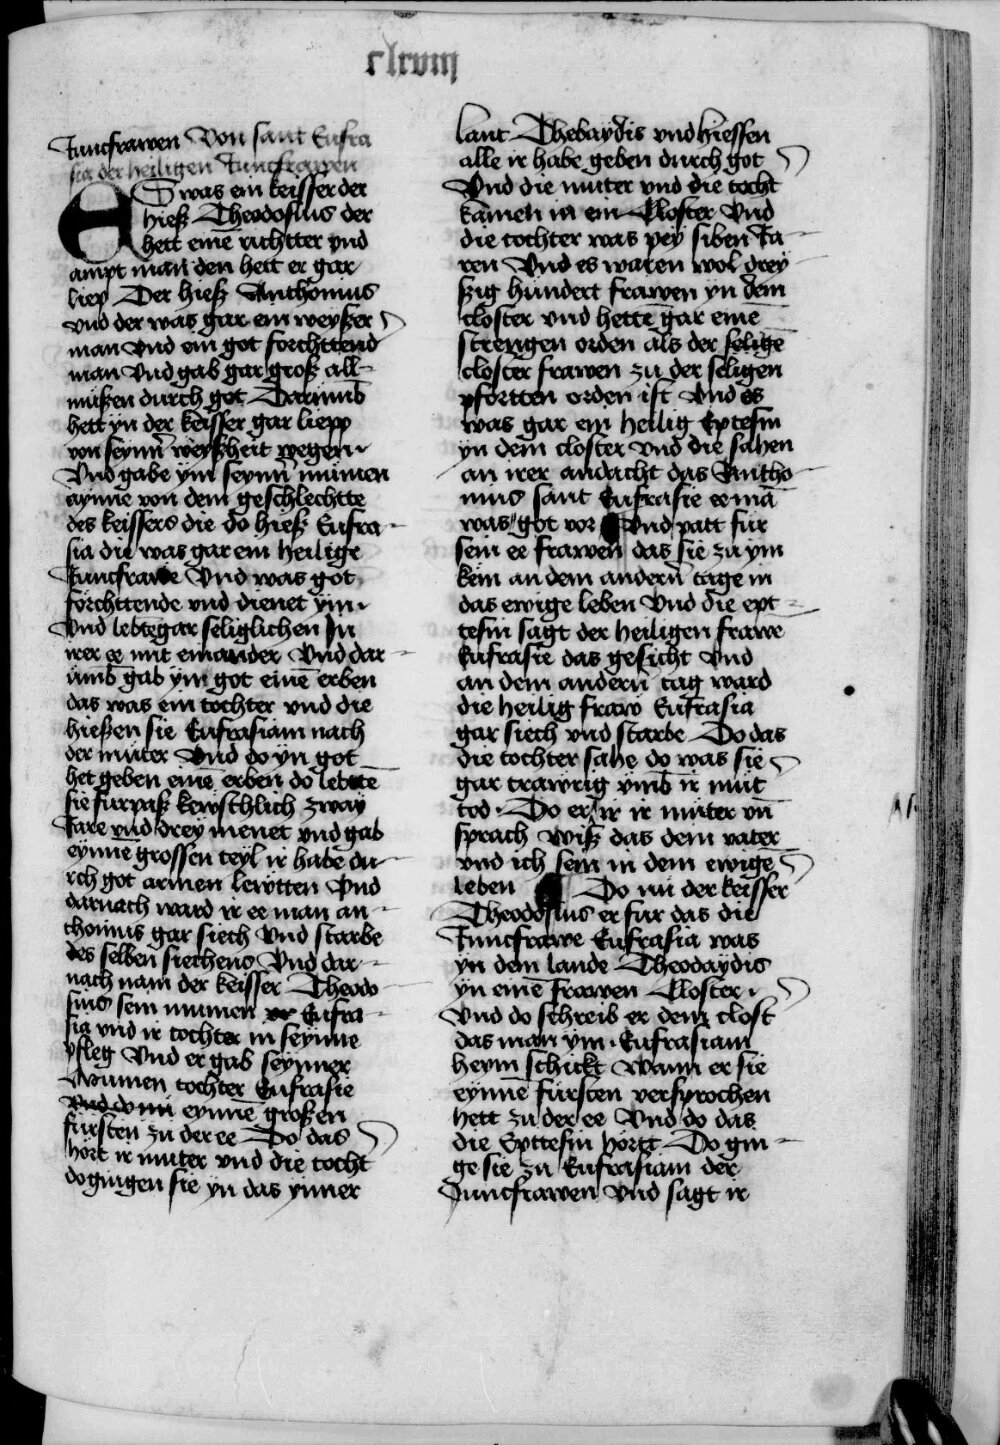 clxviij
Juncfrawen Von sant Eufra
sia der heiligen Juncfrawen
ES was ein keisser der
hieß Theodosius der
hett eine͂ richtter vnd
ampt man den hett er gar
liep Der hieß Anthonius
vnd der was gar ein weyszer
man vnd ein got forchttend
man vnd gab gar groß all-
mußen durch got Darumb
hett yn der keisser gar liepp
von seyner weyßheit wegen
Vnd gabe ym seyner mumen
aynne von dem geschlechtte
des keissers die do hieß Eufra-
sia die was gar ein heilige
Juncfrawe Vnd was got
forchttende vnd dienet ym
Vnd lebte gar seliglichen Jn
irer ee mit einander Vnd dar-
umb gab ym got eine͂ erben
das was ein tochter vnd die
hießen sie Eufrasiam nach
der muter Vnd do yn got
het geben eine͂ erben do lebtte͂
sie furpaß kewschlich zway
Jare vnd drey menet vnd gab
eynne͂ grossen teyl ir habe du-
rch got armen lewtten Vnd
darnach ward ir ee man an-
thonius gar siech Vnd starbe
des selben siechens Vnd dar-
nach nam der keisser Theodo
sius sein mumen Eufra-
sia vnd ir tochter in seynne
pfleg Vnd er gab seynner
Mumen tochter Eufrasie
eynne͂ großen
fursten zu der ee Do das
hort ir muter vnd die tocht
do gingen sie yn das ynner
lant Thebaydis vnd hiessen
alle ir habe geben durch got
Vnd die muter vnd die tocht
kamen in ein Closter Vnd
die tochter was pey siben Ja-
ren Vnd es waren wol drey-
szig hundert frawen yn dem
closter vnd hette gar eine͂
strengen orden als der selige͂
closter frawen zu der seligen
pfortten orden ist Vnd es
was gar ein heilig Eptesin
yn dem closter Vnd die sahen
an irer andacht das Antho-
nius sant Eufrasie ee ma͂
was got vor Vnd patt fur
sein ee frawen das sie zu ym
kem an dem andern tage in
das ewige leben Vnd die ept-
tesin sagt der heiligen frawe
Eufrasie das gesicht Vnd
an dem andern tag ward
die heilig fraw Eufrasia
gar siech vnd starbe Do das
die tochter sahe do was sie
gar trawrig vmb ir mut
tod Do er ir ir muter vn͂
sprach Wiß das dem vater
vnd ich sein in dem ewige͂
leben Do nu der keisser
Theodosius er fur das die
Juncfrawe Eufrasia was
yn dem lande Theodaydis
yn eine͂ frawen Closter
Vnd do schreib er dem clost
das man ym Eufrasiam
heym schickt Wann er sie
eynne͂ fursten versprochen
hett zu der ee Vnd do das
die Epttesin hortt Do gin-
ge sie zu Eufrasiam der
Juncfrawen Vnd sagt ir